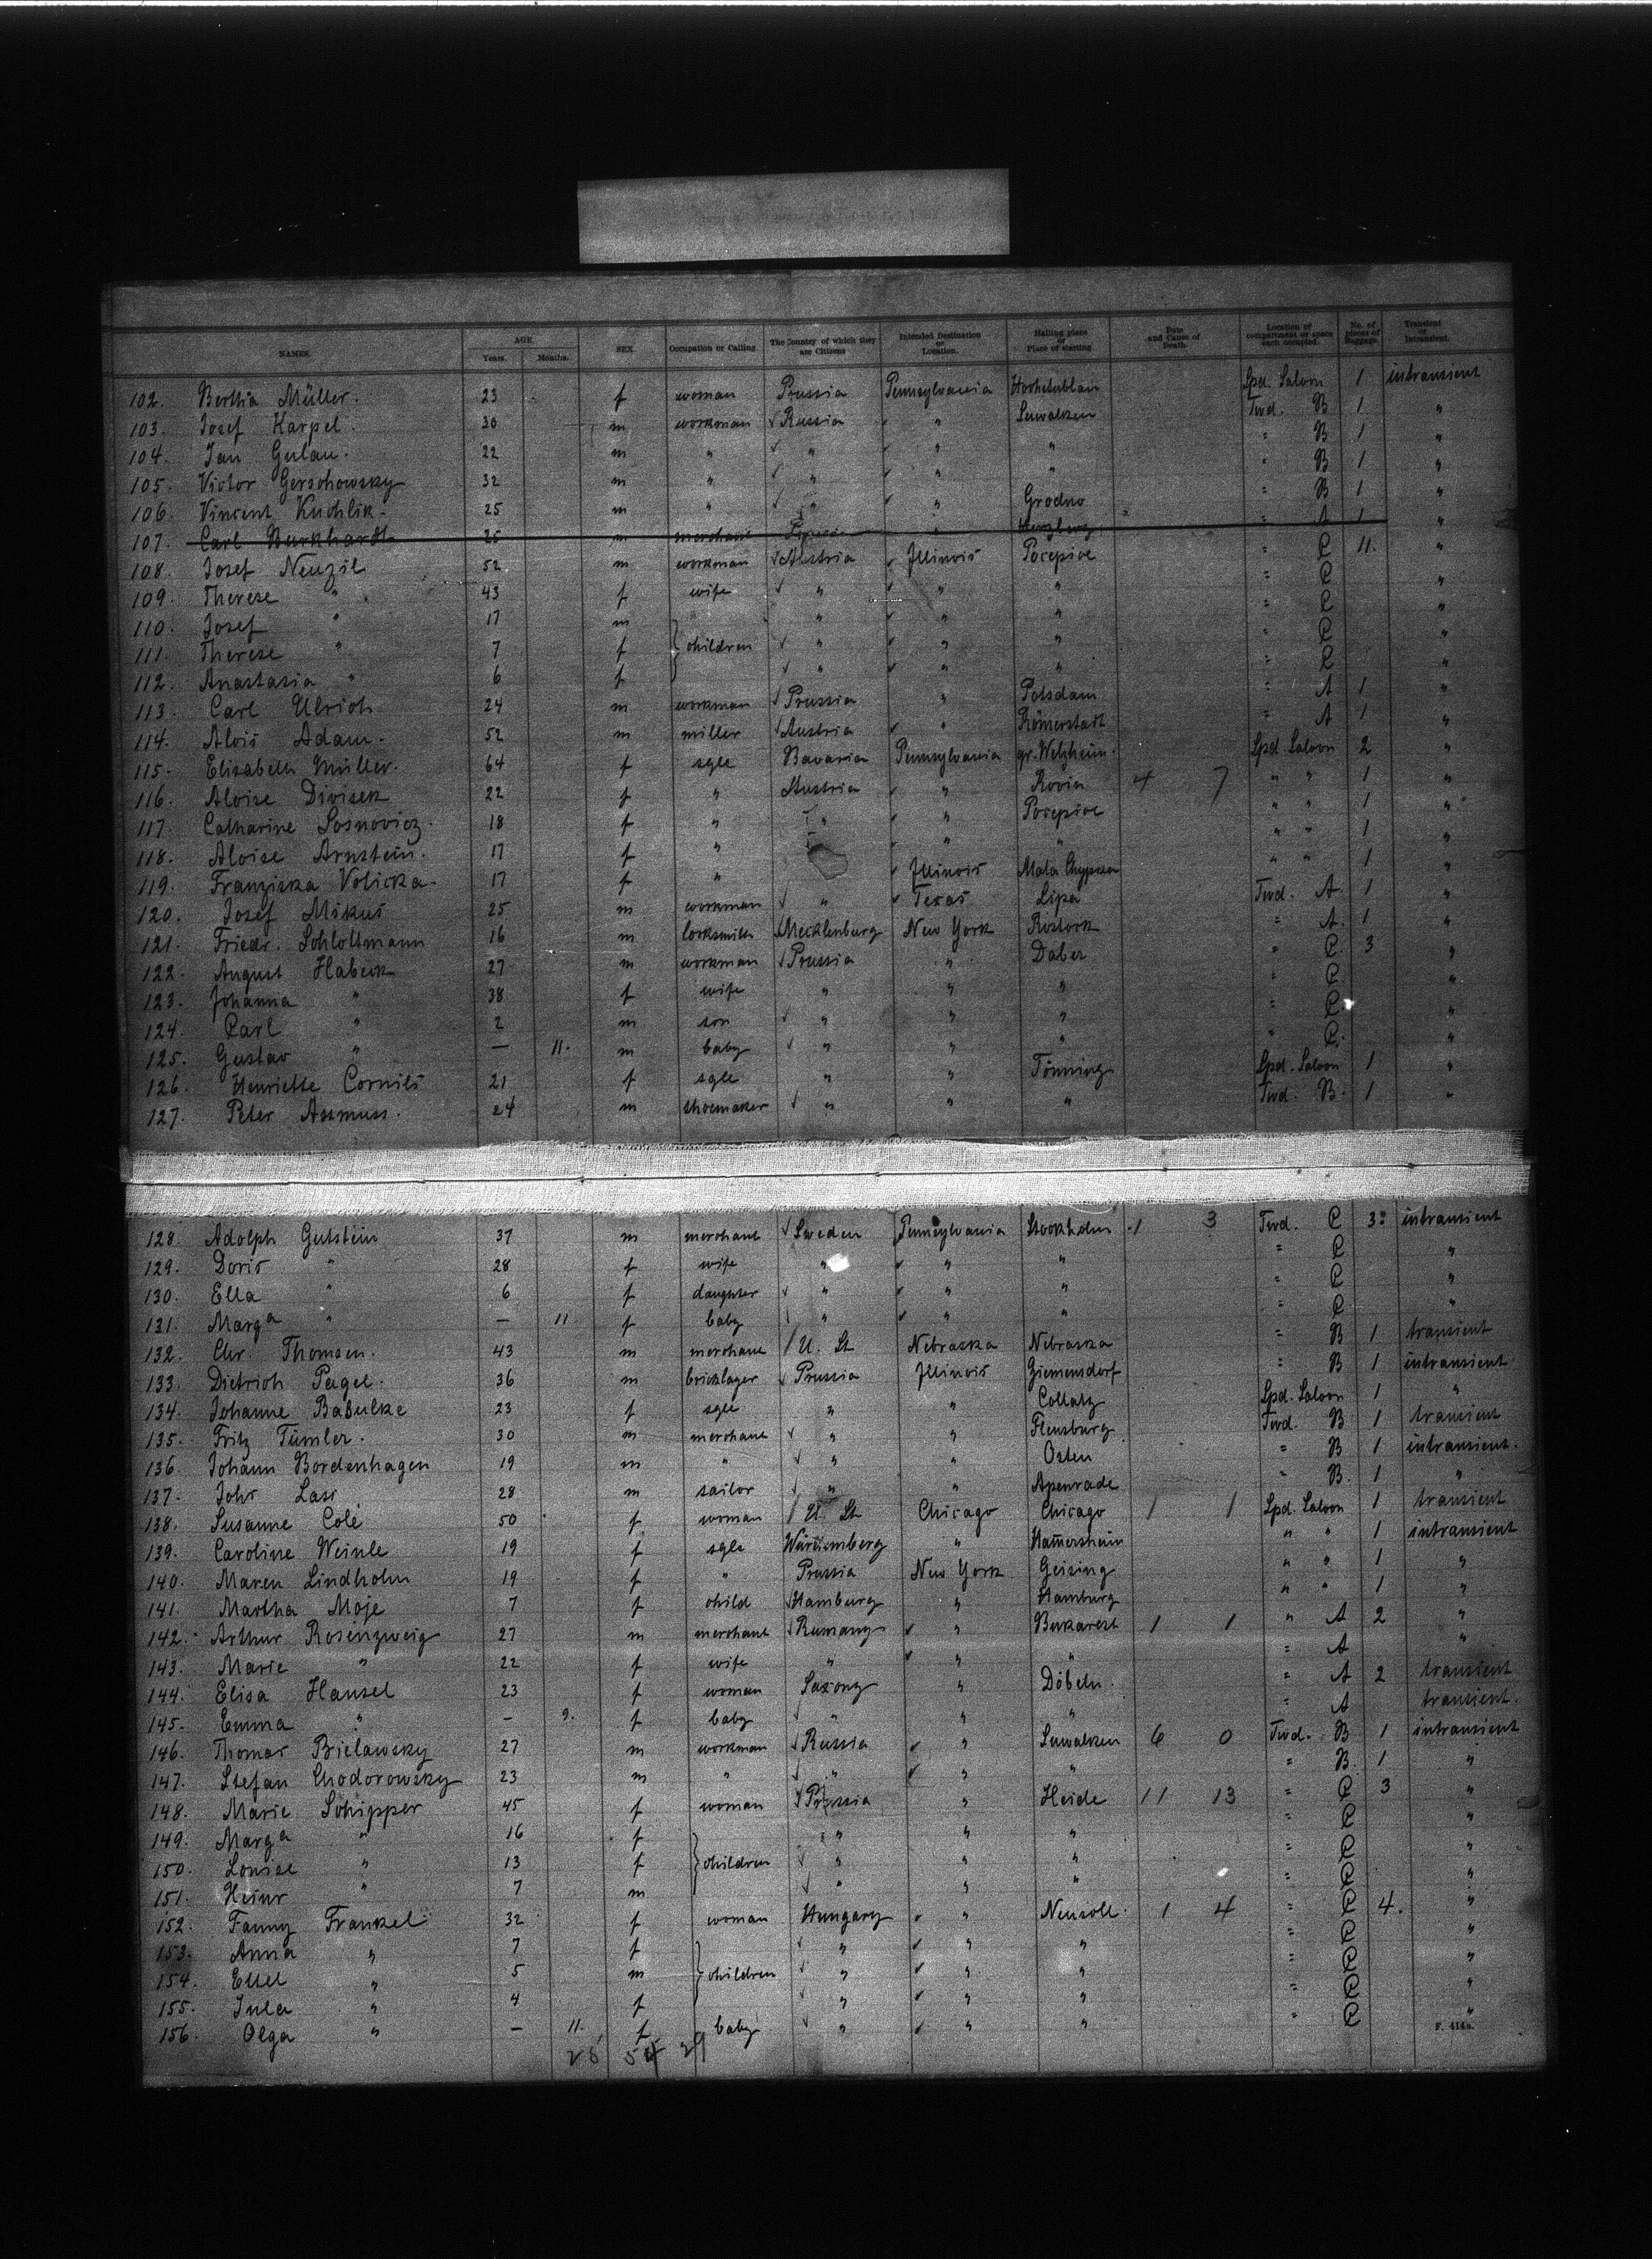 NAMES. AGE. Years. Months. SEX. Occupation or Calling. The Country of which they are Citizens Intended Destination or Location. Halting place or Place of starting Date and Cause of Death. Location of compartment or space each occupied. No. of pieces of Baggage. Transient or Intransient.
102. Bertha Müller. 23 f woman Prussia Pennsylvania Spd. Saloon 1 intransient
103. Josef Karpel. 20 m workman Russia " Suwalken Twd. B 1 "
104. Jan Gulau. 22 m " " " " " B 1 "
105. Victor Gerschowsky 32 m " " " " " B 1 "
106. Vincent Kuchlik. 25 m " " " Grodno " B 1 "
107. Carl Burkhardt 25 m merchant Prussia " Herzberg " A 1 "
108. Josef Neuzil 52 m workman Austria Illinois Pocepice " C 11. "
109. Therese " 43 f wife " " " " C "
110. Josef " 17 m " " " " C "
111. Therese " 7 f children " " " " C "
112. Anastasia " 6 f " " " " C "
113. Carl Ulrich 24 m workman Prussia " Potsdam " A 1 "
114. Alois Adam. 52 m miller Austria " Römerstadt " A 1 "
115. Elisabeth Müller. 64 f sgle Bavaria Pennsylvania gr. Welzheim. Spd Saloon 2 "
116. Aloise Divisek 22 f " Austria " Rovin 4 7 " " 1 "
117. Catharine Sosnovicz. 18 f " " " Pocepice " " 1 "
118. Aloise Arnstein. 17 f " " " " " 1 "
119. Franziska Volicka. 17 f " Illinois Mala " " 1 "
120. Josef Mikus 25 m workman " Texas Lipa Twd. A. 1 "
121. Friedr. Schlottmann 16 m locksmith Mecklenburg New York Rostock " A. 1 "
122. August Habeck 27 m workman Prussia " Daber " C. 3 "
123. Johanna " 38 f wife " " " " C. "
124. Carl " 2 m son " " " " C. "
125. Gustav " — 11. m baby " " " " C. "
126. Henriette Cornils 21 f sgle " " Tönning Spd. Saloon 1 "
127. Peter Assmuss. 24 m shoemaker " " " Twd. B. 1 "
128. Adolph Gutstein 37 m merchant Sweden Pennsylvania Stockholm 1 3 Twd. C 3 intransient
129. Doris " 28 f wife " " " " C "
130. Ella " 6 f daughter " " " " C "
131. Marga " — 11 f baby " " " " C "
132. Chr. Thomsen. 43 m merchant U. St Nebraska Nebraska " B 1 transient
133. Dietrich Pagel. 36 m bricklayer Prussia Illinois Giemensdorf " B 1 intransient
134. Johanne Babulke 23 f sgle " " Collatz Spd. Saloon 1 "
135. Fritz Tümler. 30 m merchant " " Flensburg Twd. B 1 transient
136. Johann Bordenhagen 19 m " " " Osten " B 1 intransient.
137. Johs Lass. 28 m sailor " " Apenrade " B. 1 "
138. Susanne Cole 50 f woman U. St Chicago Chicago 1 1 Spd. Saloon 1 transient
139. Caroline Weinle 19 f sgle Würtemberg " " " 1 intransient
140. Maren Lindholm 19 f " Prussia New York Geising " " 1 "
141. Martha Moje 7 f child Hamburg " Hamburg " " 1 "
142. Arthur Rosenzweig 27 m merchant Rumany " Bukarest 1 1 " A 2 "
143. Marie " 22 f wife " " " " A "
144. Elisa Hansel 23 f woman Saxony " Döbeln. " A 2 transient
145. Emma " — 9. f baby " " " " A transient.
146. Thomas Bielawsky 27 m workman Russia " Suwalken 6 0 Twd. B 1 intransient
147. Stefan Chodorowsky 23 m " " " " " B 1 "
148. Marie Schipper 45 f woman Prussia " Heide 11 13 " C 3 "
149. Marga " 16 f " " " " C "
150. Louise " 13 f children " " " " C "
151. Heinr " 7 m " " " " C "
152. Fanny Frankel 32 f woman Hungary " Neusoll. 1 4 " C 4. "
153. Anna " 7 f " " " " C "
154. Ettel " 5 m children " " " " C "
155. Jula " 4 f " " " " C "
156. Olga " — 11. f baby " " " " C "
F. 414a.
28 54 29